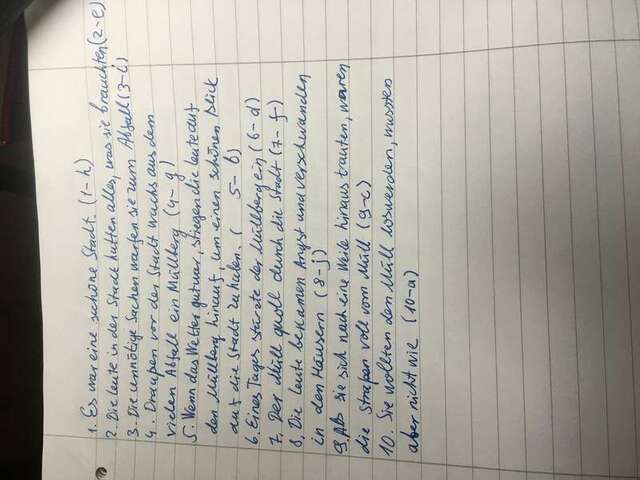 1. Es war eine schöne Stadt. (1-h)
2. Die Leute in der Stadt hatten alles, was sie brauchten (2-e)
3. Die unnötige Sachen warfen sie zum Abfall (3-i)
4. Draußen vor der Stadt wuchs aus dem
vielen Abfall ein Müllberg (4-g)
5. Wenn das Wetter gut war, stiegen die Leute auf
den Müllberg hinauf, um einen schönen Blick
auf die Stadt zu haben. ( 5-b)
6. Eines Tages stürzte der Müllberg ein (6-d)
7. Der Müll quoll durch die Stadt (7-f)
8. Die Leute bekamen Angst und verschwanden
in den Häusern (8-j)
9. Als sie sich nach eine Weile hinaus trauten, waren
die Straßen voll vom Müll (9-c)
10. Sie wollten den Müll loswerden, wussten
aber nicht wie (10-a)